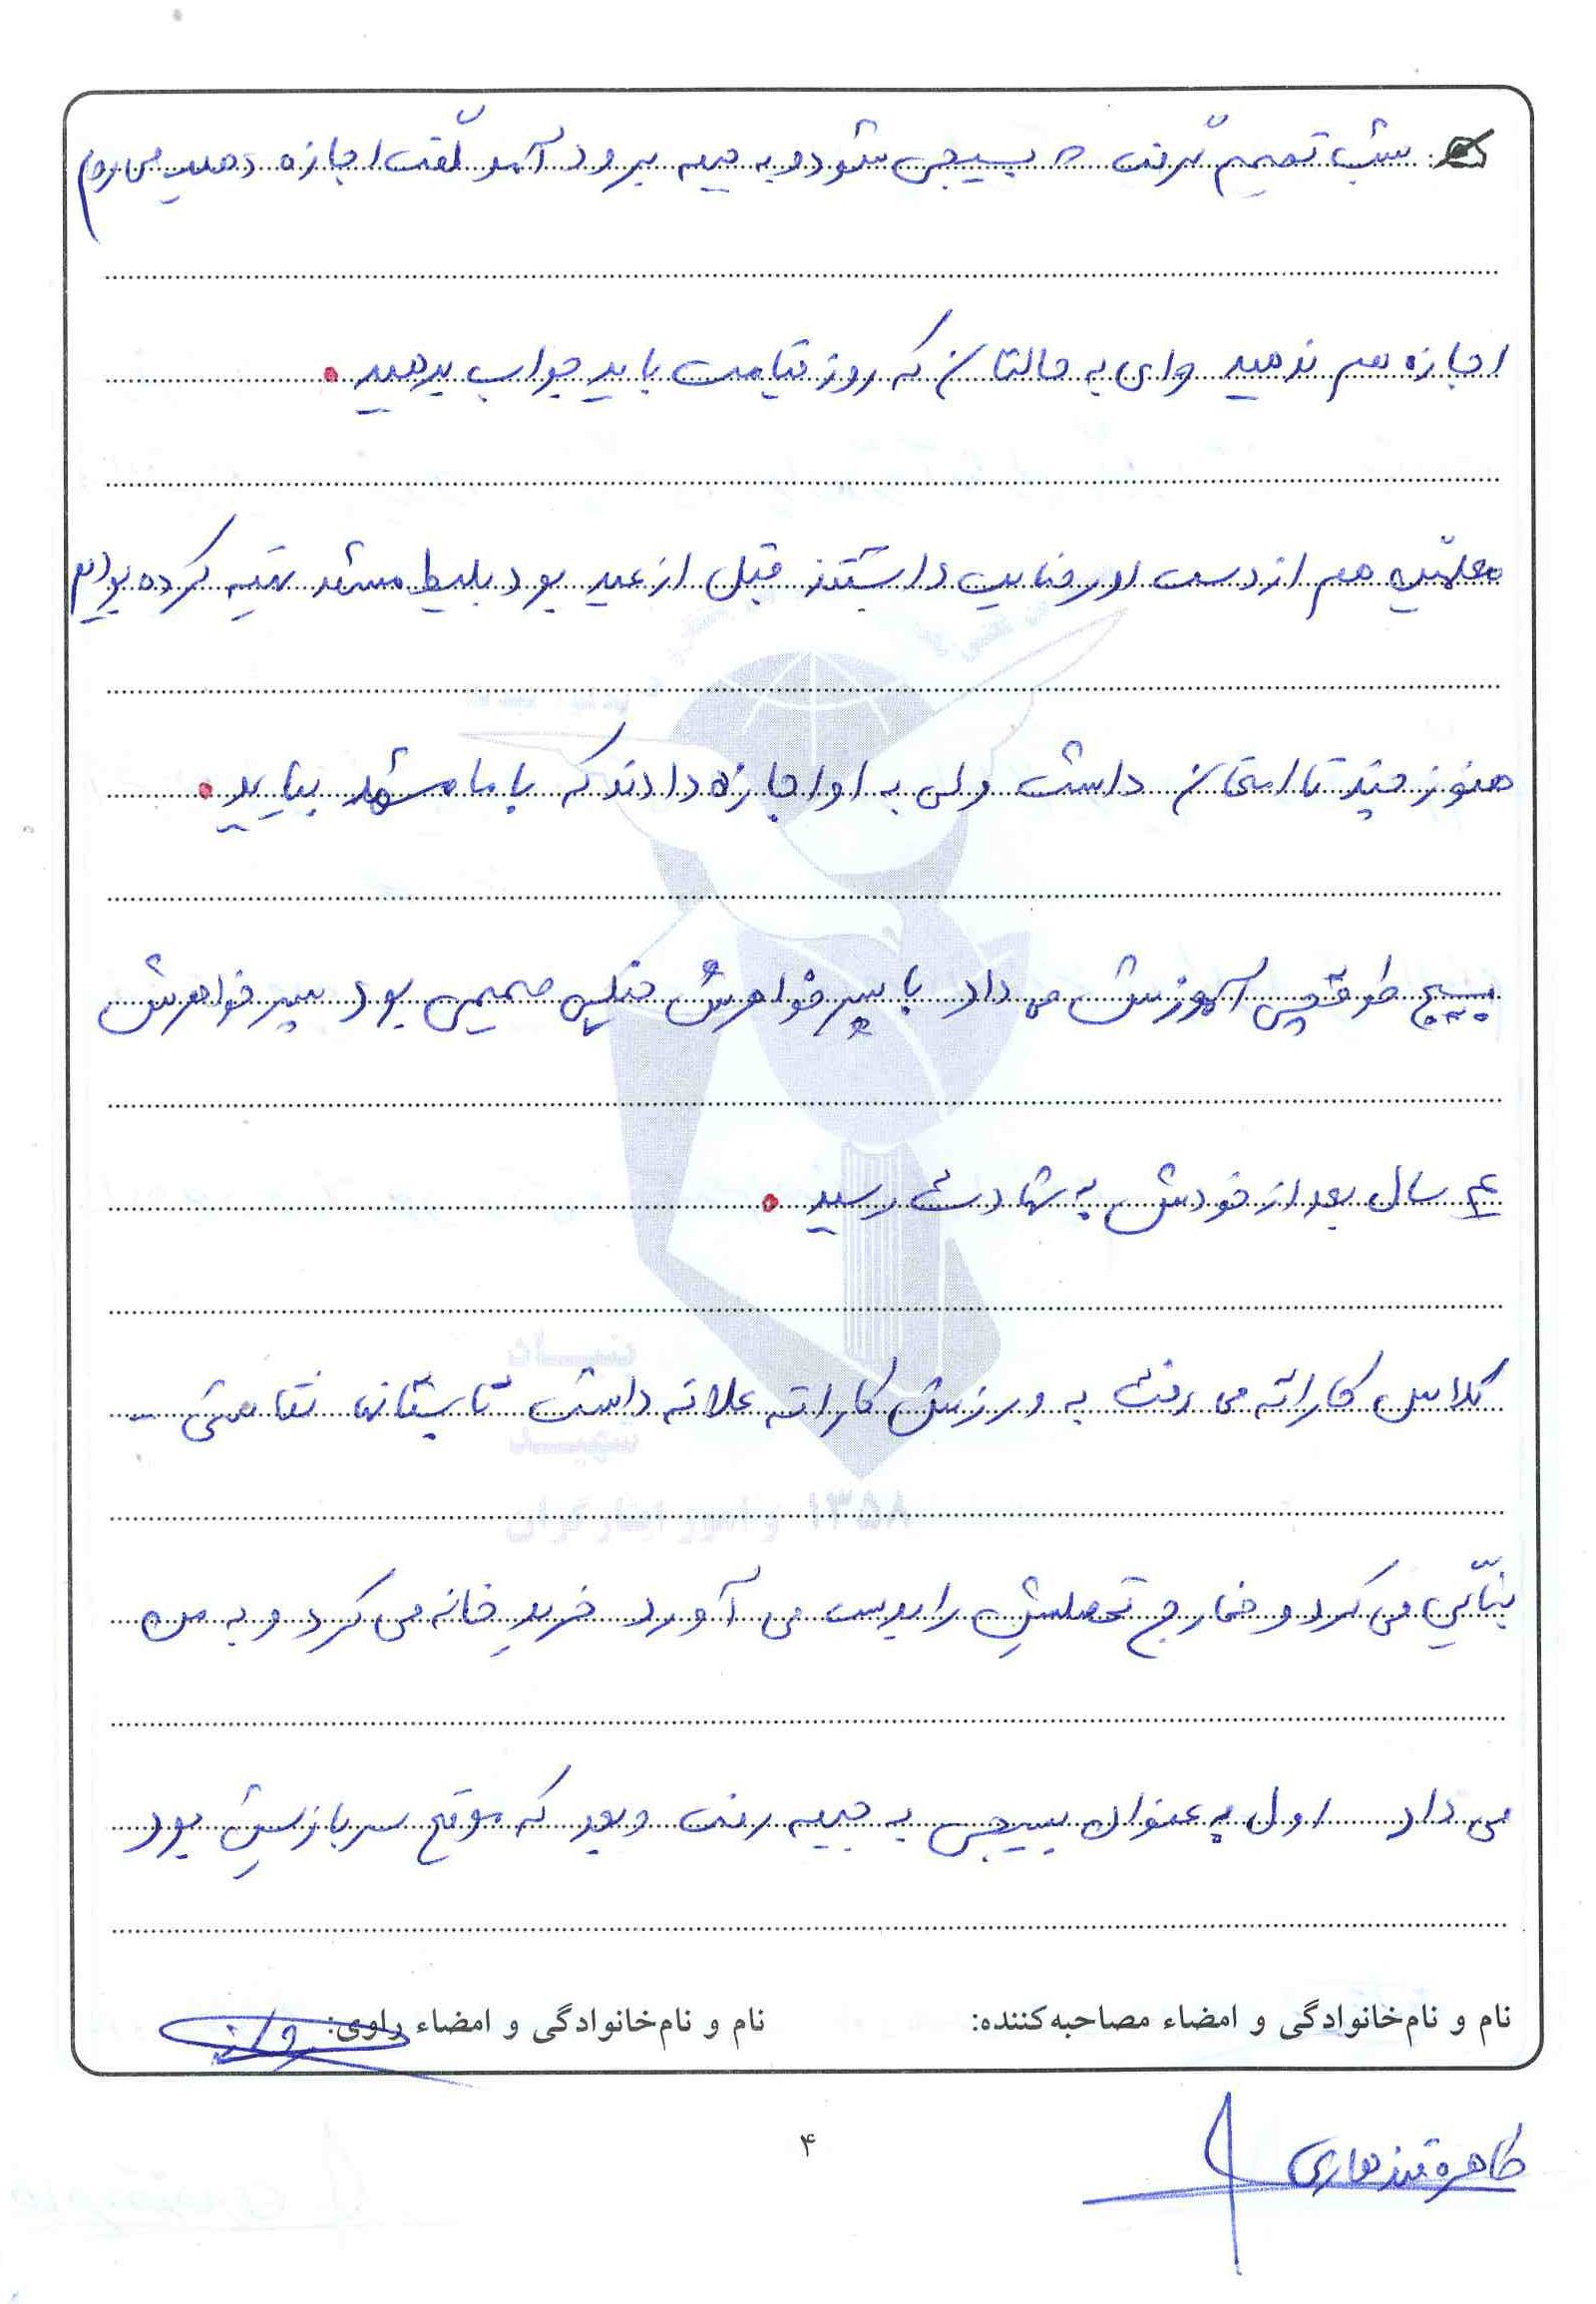 شب تصمیم گرفت که بسیجی شود و به جبهه برود آمد گفت اجازه دهید می روم
اجازه هم ندهید وای به حالتان که روز قیامت باید جواب بدهید.
معلمین هم از دست او رضایت داشتند قبل از عید بود بلیط مشهد تهیه کرده بودیم
هنوز چند تا امتحان داشت ولی به او اجازه دادند که با ما مشهد بیاید.
بسیج طوقچی آموزش می داد با پسر خواهرش خیلی صمیمی بود پسر خواهرش
۴ سال بعد از خودش به شهادت رسید.
کلاس کاراته می رفت به ورزش کاراته علاقه داشت تابستانها نقاشی -
بنّائی می کرد و خارج تحصیلش را بدست می آورد خرید خانه می کرد و به من
می داد اول به عنوان بسیجی به جبهه رفت و بعد که موقع سربازیش بود
نام و نام‌خانوادگی و امضاء مصاحبه‌کننده: نام و نام‌خانوادگی و امضاء راوی:
طاهره قندهاری
۴
بنیاد
شهید
و امور ایثارگران ۱۳۵۸